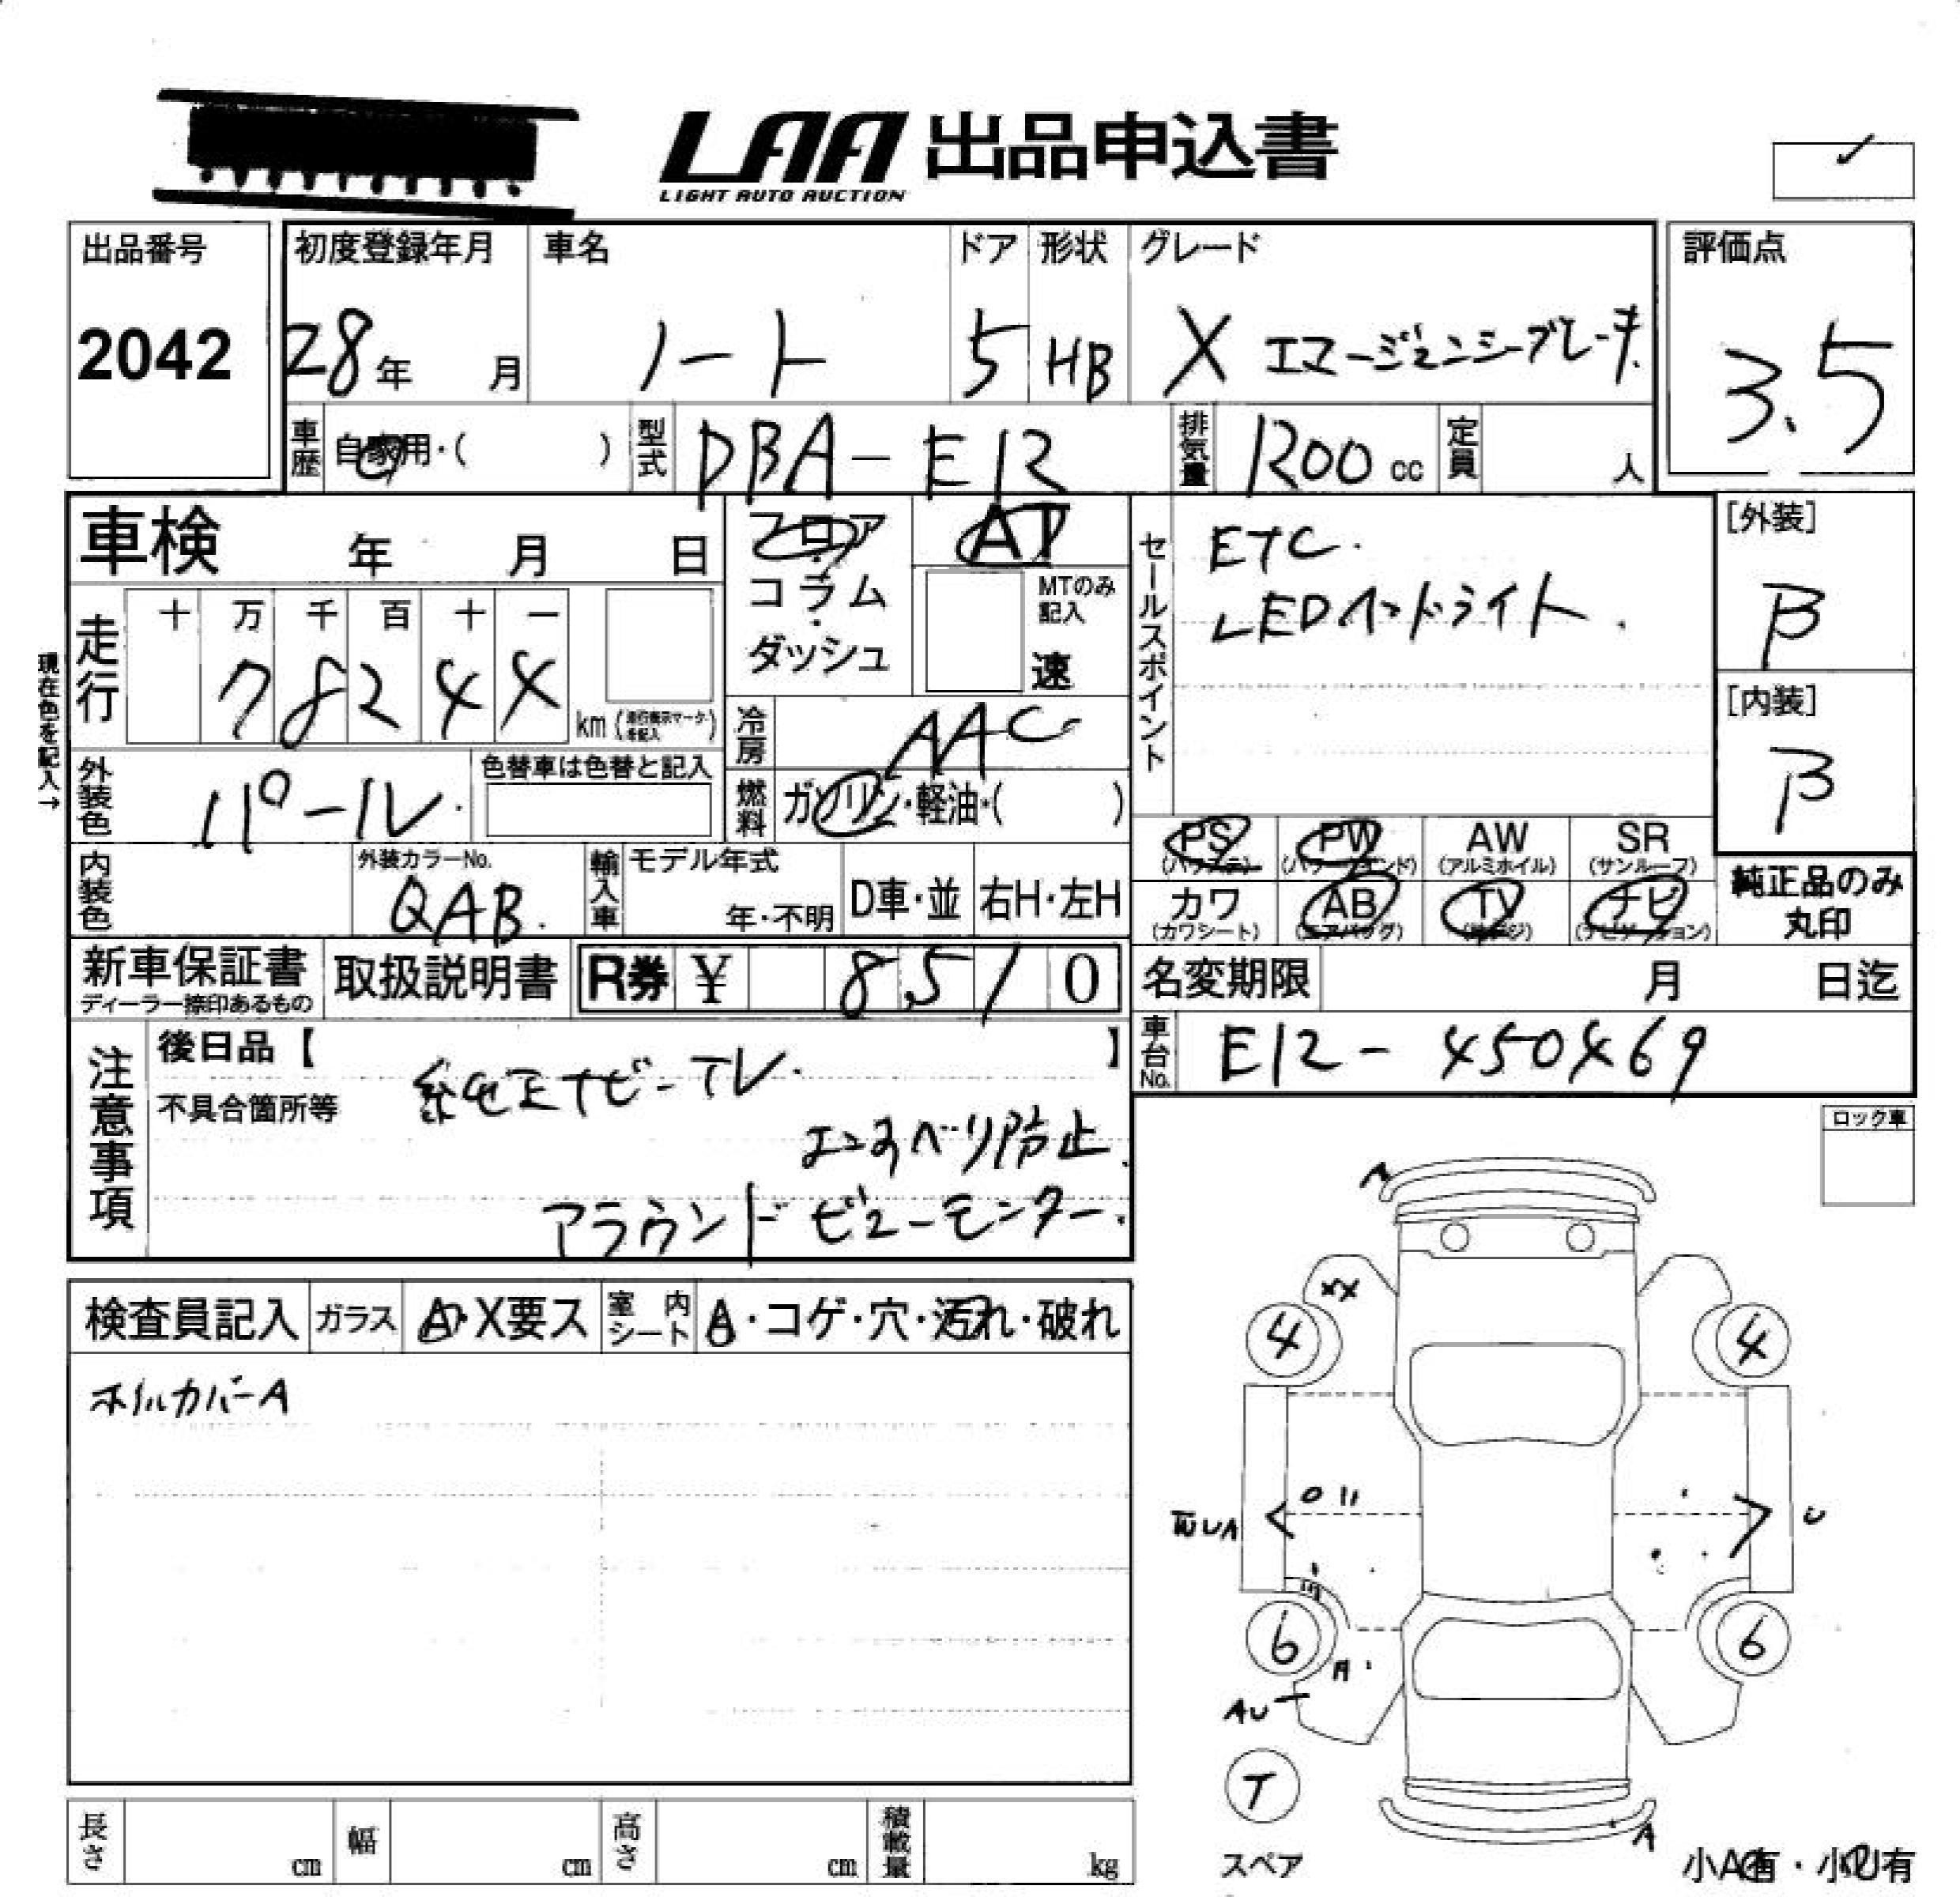 LAA 出品申込書
LIGHT AUTO AUCTION
出品番号
2042
初度登録年月
28年 月
車名
ノート
ドア
5
形状
HB
グレード
X エマージェンシーブレーキ
評価点
3.5
車歴
自家用・( )
型式
DBA-E12
排気量
1200 cc
定員
人
車検 年 月 日
走行
十 万 千 百 十 一
78244
km (走行表示マークを記入)
現在色を記入→
フロア・コラム・ダッシュ
AT
MTのみ記入
速
冷房
AAC
燃料
ガソリン・軽油・( )
セールスポイント
ETC.
LEDヘッドライト.
[外装]
B
[内装]
B
外装色
パール.
色替車は色替と記入
内装色
外装カラーNo.
QAB.
輸入車
モデル年式
年・不明
D車・並
右H・左H
PS
(パワステ)
PW
(パワーウインド)
AW
(アルミホイル)
SR
(サンルーフ)
カワ
(カワシート)
AB
(エアバッグ)
TV
ナビ
(ナビゲーション)
純正品のみ
丸印
新車保証書
ディーラー捺印あるもの
取扱説明書
R券 ¥ 8,510
名変期限 月 日迄
車台No.
E12-450469
注意事項
後日品【 】
不具合箇所等
純正ナビ-TV.
エンすべり防止.
アラウンドビューモニター.
ロック車
検査員記入
ガラス
A・X要ス
室内シート
A・コゲ・穴・汚れ・破れ
ホイルカバーA
XX
4
4
UA
U
6
6
A
AU
T
スペア
A
小A有・小U有
長さ cm
幅 cm
高さ cm
積載量 kg